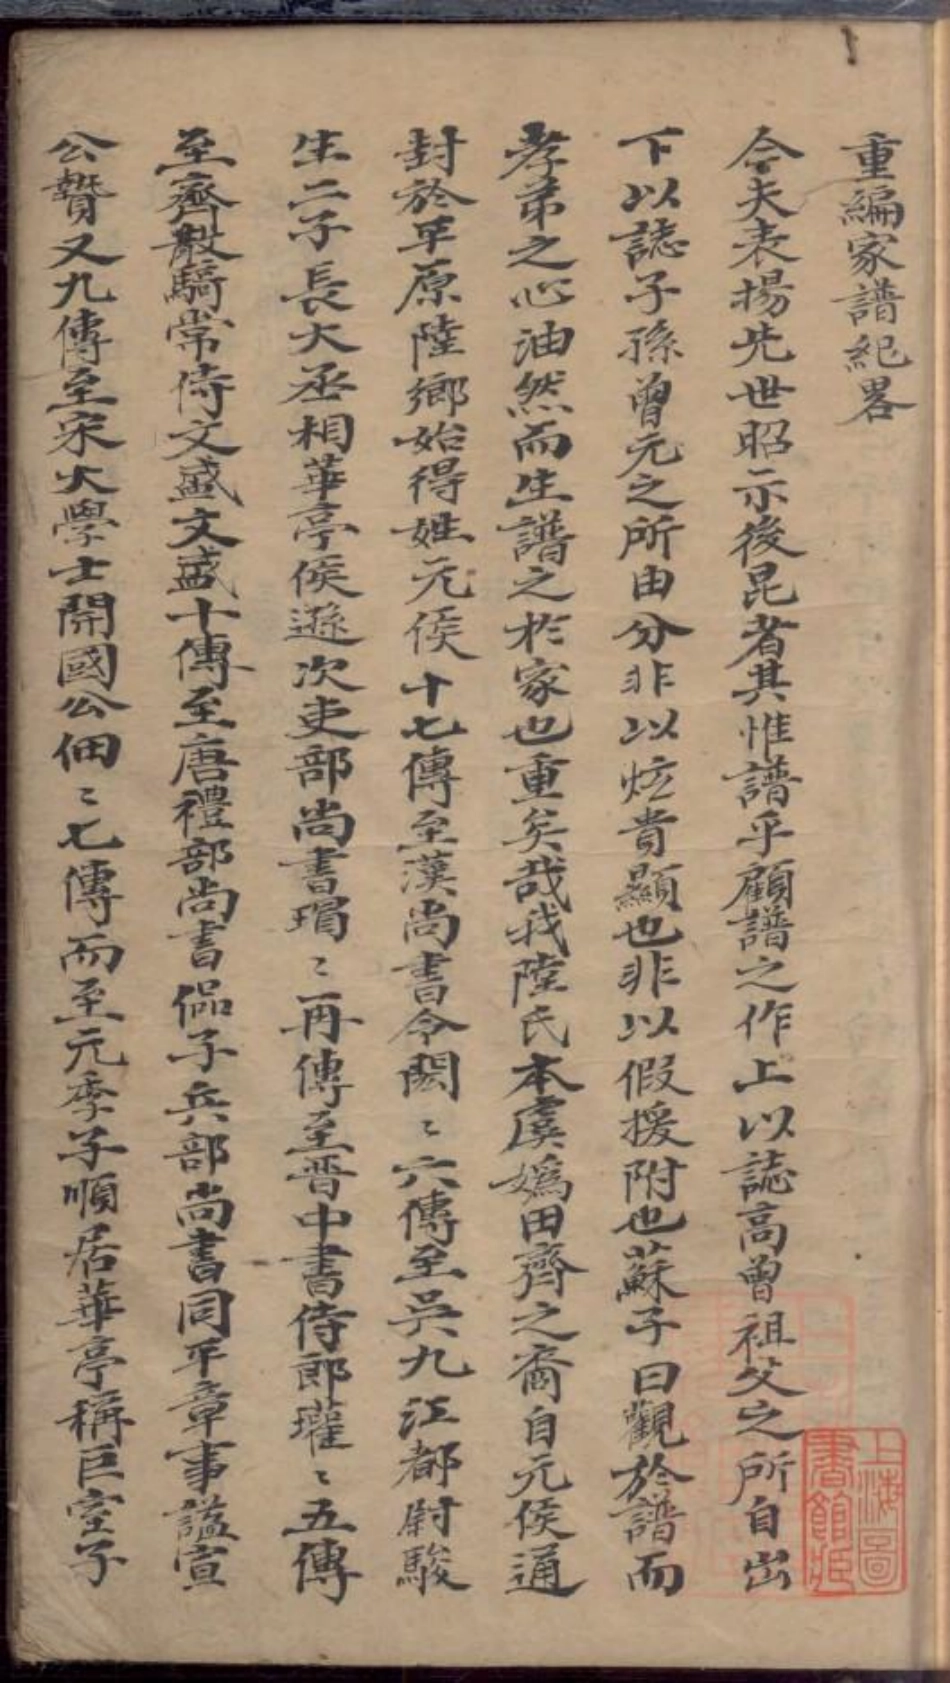 重編家譜紀畧
今夫表揚先世昭示後昆者其惟譜乎顧譜之作上以誌高曾祖父之所自出
下以誌子孫曾元之所由分非以炫貴顯也非以假援附也蘇子曰觀於譜而
孝弟之心油然而生譜之於家也重矣哉我陸氏本虞媯田齊之裔自元侯通
封於平原陸鄉始得姓元侯十七傳至漢尚書令閎〻六傳至吳九江都尉駿
生二子長大丞相華亭侯遜次吏部尚書瑁〻再傳至晉中書侍郎瓘〻五傳
至齊散騎常侍文盛文盛十傳至唐禮部尚書侶子兵部尚書同平章事謚宣
公贄又九傳至宋大學士開國公佃〻七傳而至元季子順居華亭稱巨室子
上海圖
書館藏